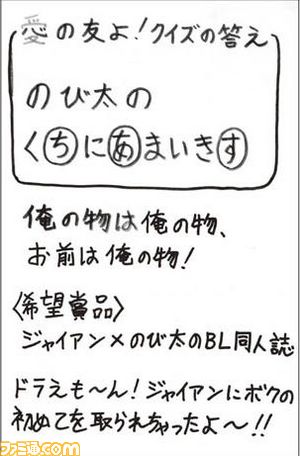 愛の友よ！クイズの答え
のび太の
くちにあまいきす
俺の物は俺の物、
お前は俺の物！
〈希望賞品〉
ジャイアン×のび太のBL同人誌
ドラえも〜ん！ジャイアンにボクの
初めてを取られちゃったよ〜!!
ファミ通.com